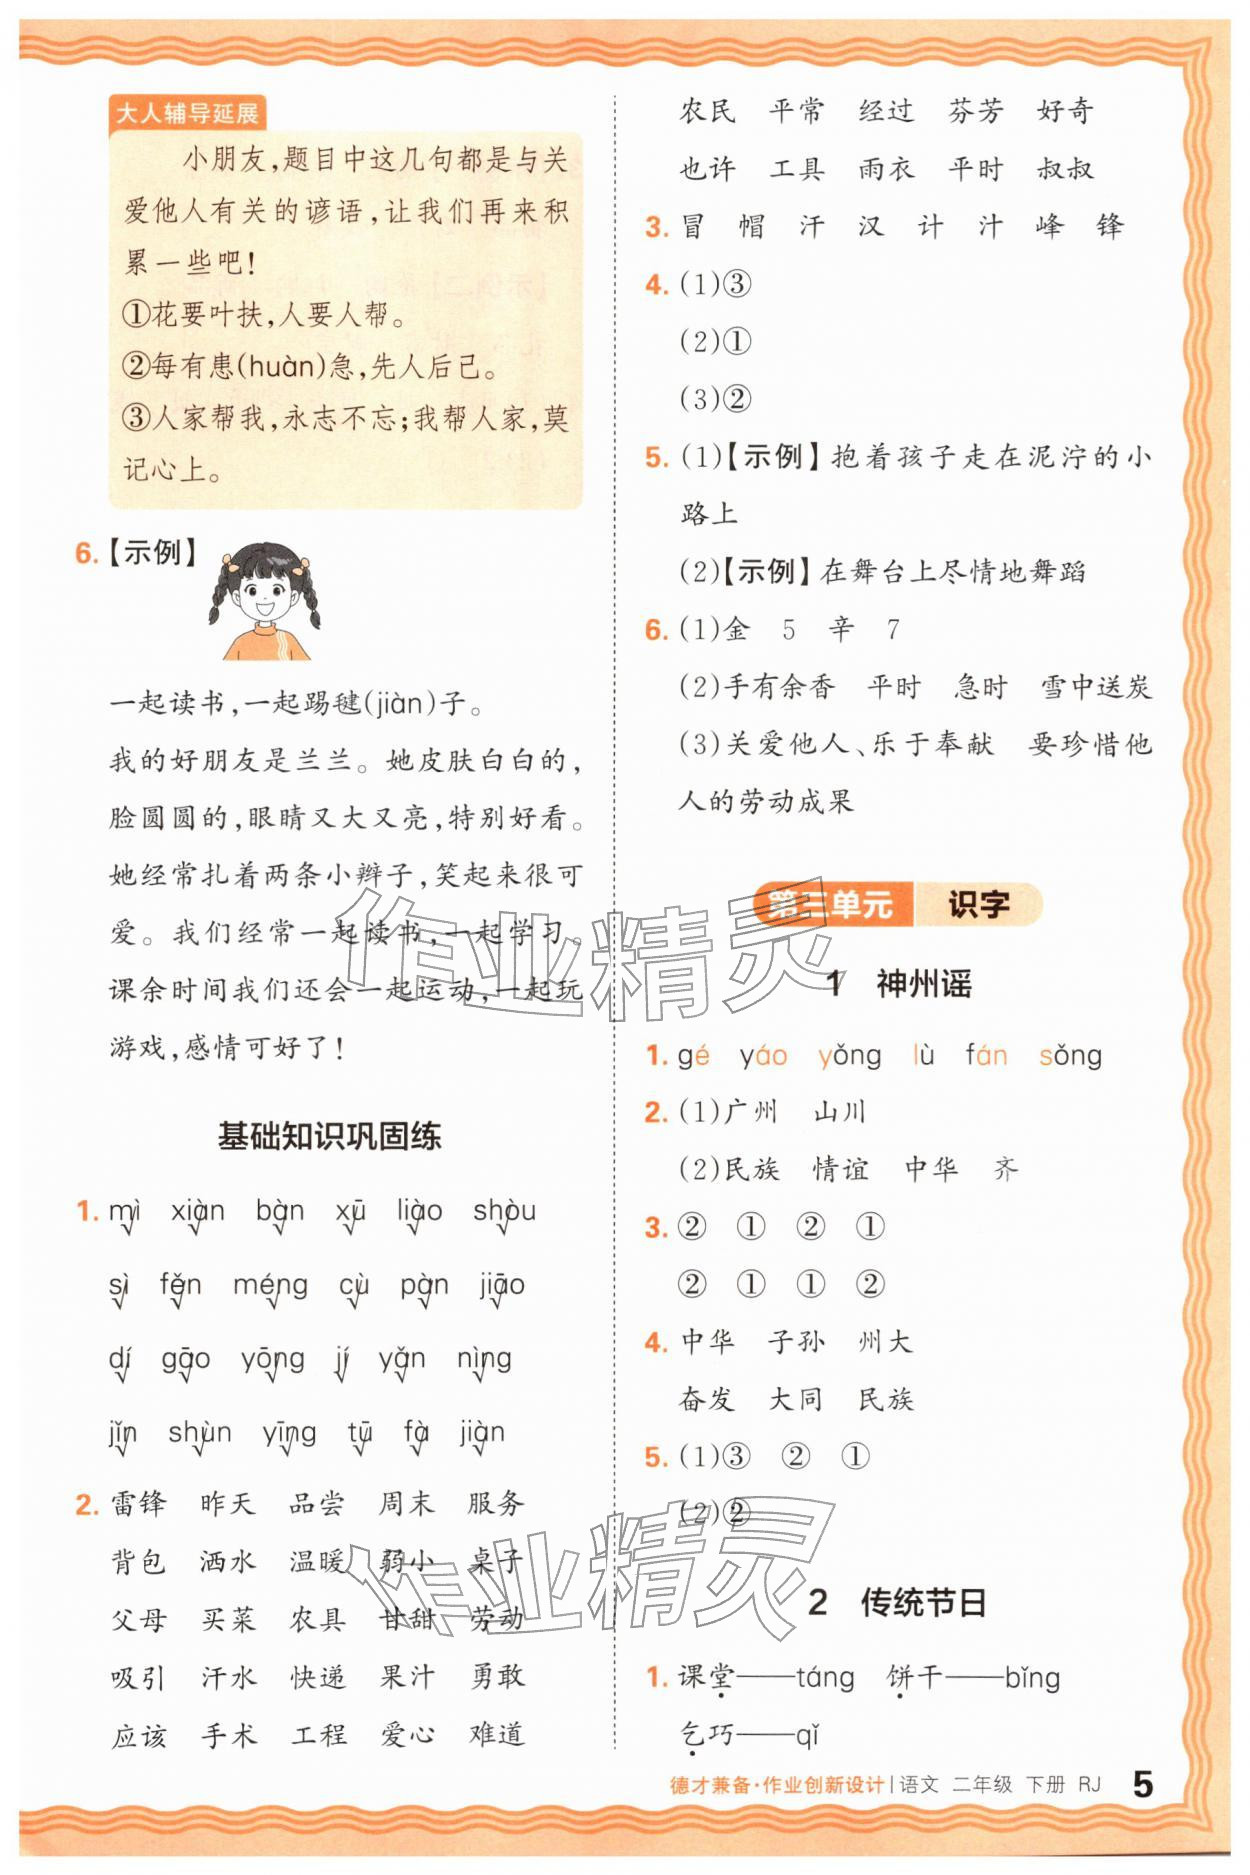 大人辅导延展
小朋友,题目中这几句都是与关
爱他人有关的谚语,让我们再来积
累一些吧!
①花要叶扶,人要人帮。
②每有患(huàn)急,先人后己。
③人家帮我,永志不忘;我帮人家,莫
记心上。
6.【示例】
一起读书,一起踢毽(jiàn)子。
我的好朋友是兰兰。她皮肤白白的,
脸圆圆的,眼睛又大又亮,特别好看。
她经常扎着两条小辫子,笑起来很可
爱。我们经常一起读书,一起学习。
课余时间我们还会一起运动,一起玩
游戏,感情可好了!
基础知识巩固练
1. mì xiàn bàn xū liào shòu
sì fěn méng cù pàn jiāo
dí gāo yōng jí yǎn nìng
jǐn shùn yīng tū fà jiàn
2. 雷锋 昨天 品尝 周末 服务
背包 洒水 温暖 弱小 桌子
父母 买菜 农具 甘甜 劳动
吸引 汗水 快递 果汁 勇敢
应该 手术 工程 爱心 难道
农民 平常 经过 芬芳 好奇
也许 工具 雨衣 平时 叔叔
3. 冒 帽 汗 汉 计 汁 峰 锋
4. (1)③
(2)①
(3)②
5. (1)【示例】抱着孩子走在泥泞的小
路上
(2)【示例】在舞台上尽情地舞蹈
6. (1)金 5 辛 7
(2)手有余香 平时 急时 雪中送炭
(3)关爱他人、乐于奉献 要珍惜他
人的劳动成果
第三单元 识字
1 神州谣
1. gé yáo yǒng lù fán sǒng
2. (1)广州 山川
(2)民族 情谊 中华 齐
3. ② ① ② ①
② ① ① ②
4. 中华 子孙 州大
奋发 大同 民族
5. (1)③ ② ①
(2)②
2 传统节日
1. 课堂——táng 饼干——bǐng
乞巧——qǐ
德才兼备·作业创新设计|语文 二年级 下册 RJ 5
作业精灵
作业精灵